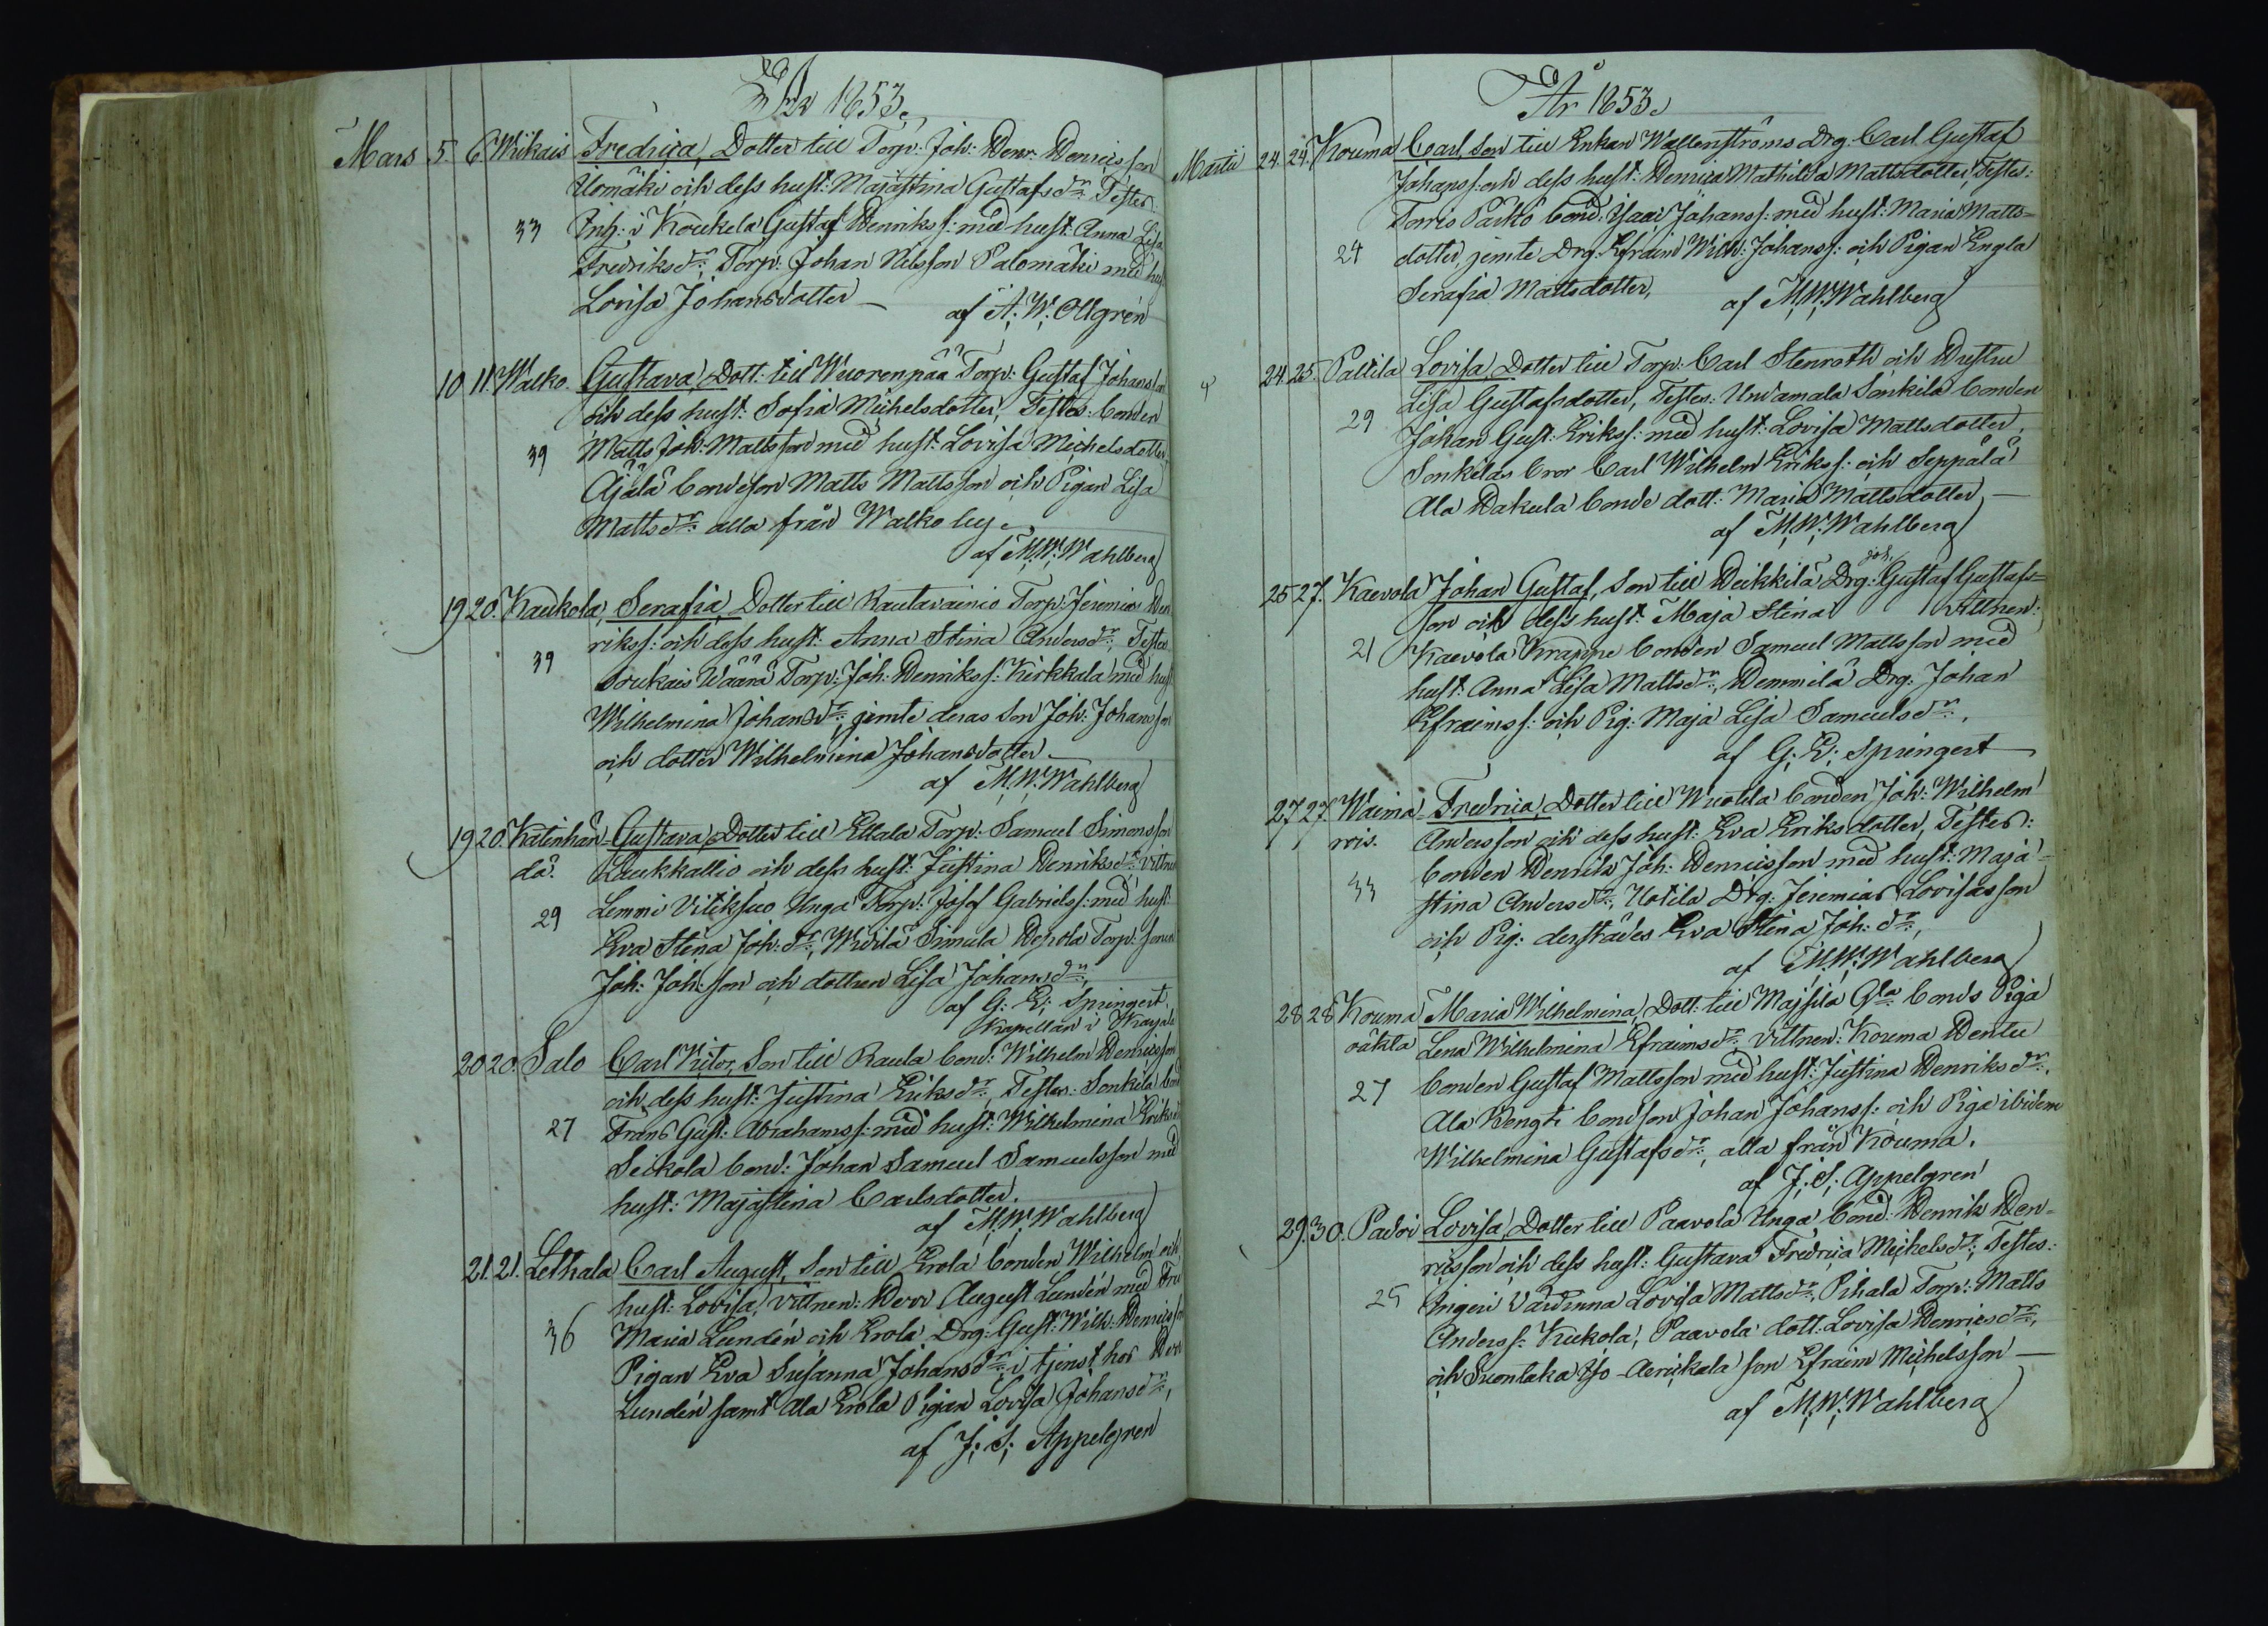 År 1853.
Mars 5. 6 Wiikais Fredrica, Dotter till Torp: Joh: Henr: Henricsson
Uomäki och dess hust: Majastina Gustafsdr: Testes:
33 Inh: i Koukela Gustaf Henrikss: med hust: Anna Lisa
Fredriksdr:, Torp: Johan Nilsson Palomäki med hust
Lovisa Johansdotter —
af A. W. Ollgrén
10 11. Walko. Gustava, Dott: till Wuorenpää Torp: Gustaf Johansson
och dess hust: Sofia Michelsdotter, Testes: bonden
39 Matts Joh: Mattsson med hust: Lovisa Michelsdotter,
Äjälä bondeson Matts Mattsson och Pigan Lisa
Mattsdr: alla från Walko by.
af M. W. Wahlberg
19 20. Kaukola, Serafia, Dotter till Rautavainio Torp: Jeremias Hen
rikss: och dess hust: Anna Stina Andersdr:, Testes
39 Soukais Wäärä Torp: Joh: Henrikss: Kirkkala med hust
Wilhelmina Johansdr:, jemte deras Son Joh: Johansson
och dotter Wilhelmina Johansdotter.
af M. W. Wahlberg
19 20. Katinhän- Gustava, Dotter till Ellala Torp: Samuel Simonsson
dä. Laukkallio och dess hust: Justina Henriksdr: Vittnen
29 Lemmi Unga Torp: Josef Gabrielss: med hust:
Eva Stina Joh: dr:, Simula Hepola Torp: sonen
Joh: Joh: son och dottren Lisa Johansdr:,
af G. E. Springert.
Kapellan i Karjala
20 20. Salo Carl Victor, Son till Raula bond: Wilhelm Henricsson
och dess hust: Justina Eriksdr:, Testes: Sonkila bond
27 Frans Gust: Abrahamss: med hust: Wilhelmina Eriksd
Seikola bond: Johan Samuel Samuelsson med
hust: Majastina Carlsdotter.
af M. W. Wahlberg
21. 21. Lethala Carl August, Son till Erola bonden Wilhelm och
hust: Lovisa, Vittnen: Herr August Lundén med Fru
36 Maria Lundén och Erola Drg: Gust: Wilh: Henricsson
Pigan Eva Susanna Johansdr: i tjenst hos Herr
Lundén samt Ala Erola Pigan Lovisa Johansdr:,
af J. S. Appelgren
År 1853.
Martii 24. 24. Kouma Carl, Son till Enkan Wallenströms Drg. Carl Gustaf
Johanss: och dess hust: Henrica Mathilda Mattsdotter, Testes:
Torris Parko bond: Isac Johanss: med hust: Maria Matts-
24 dotter, jemte Drg: Efraim Wilh: Johanss: och Pigan Engla
Serafia Mattsdotter,
af M. W. Wahlberg
24. 25. Paltila Lovisa, Dotter till Torp: Carl Stenroth och Hustru
Lisa Gustafsdotter, Testes: Untamala Sonkila bonden
29 Johan Gust: Erikss: med hust: Lovisa Mattsdotter,
Sonkilas bror Carl Wilhelm Erikss: och Seppälä
Ala Hakula bonde dott: Maria Mattsdotter, —
af M. W. Wahlberg
25 27. Kaevola Johan Gustaf, Son till Heikkilä Drg: Joh: Gustaf Gustafs-
son och dess hust: Maja Stina Vittnen:
21 Kaevola Krappe bonden Samuel Mattsson med
hust: Anna Lisa Mattsdr:, Hemmilä Drg: Johan
Efraimss: och Pig: Maja Lisa Samuelsdr:,
af G. E. Springert
27 27. Waima- Fredrica, Dotter till Wuolila bonden Joh: Wilhelm
rois. Andersson och dess hust: Eva Eriksdotter, Testes:
33 bonden Henrik Joh: Henricsson med hust: Maja-
stina Andersdr:, Uotila Drg: Jeremias Lovisasson
och Pig: derstädes Eva Stina Joh: dr:,
af M. W. Wahlberg
28 28 Kouma Maria Wilhelmina, Dott: till Majsila Gla bonds Piga
Lena Wilhelmina Efraimsdr:, Vittnen: Kouma Hentu
27 bonden Gustaf Mattsson med hust: Justina Henriksdr:,
Ala Kengti bondson Johan Johanss: och Piga ibidem
Wilhelmina Gustafsdr:, alla från Kouma.
af J. S. Appelgren
29. 30. Padoi Lovisa, Dotter till Paavola Unga bond: Henrik Hen-
ricsson och dess hust: Gustava Fredrica Michelsdr:, Testes:
25 Ingeri Värdinna Lovisa Mattsdr:, Pihala Torp: Matts
Anderss: Kukola, Paavola dott: Lovisa Henricsdr:,
och Suontaka Yso-Aerikkala son Efraim Michelsson —
af M. W. Wahlberg